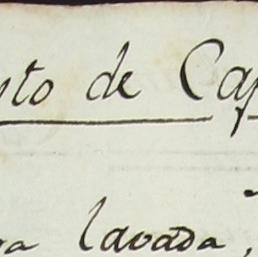 sto de Cap
ga lavada,